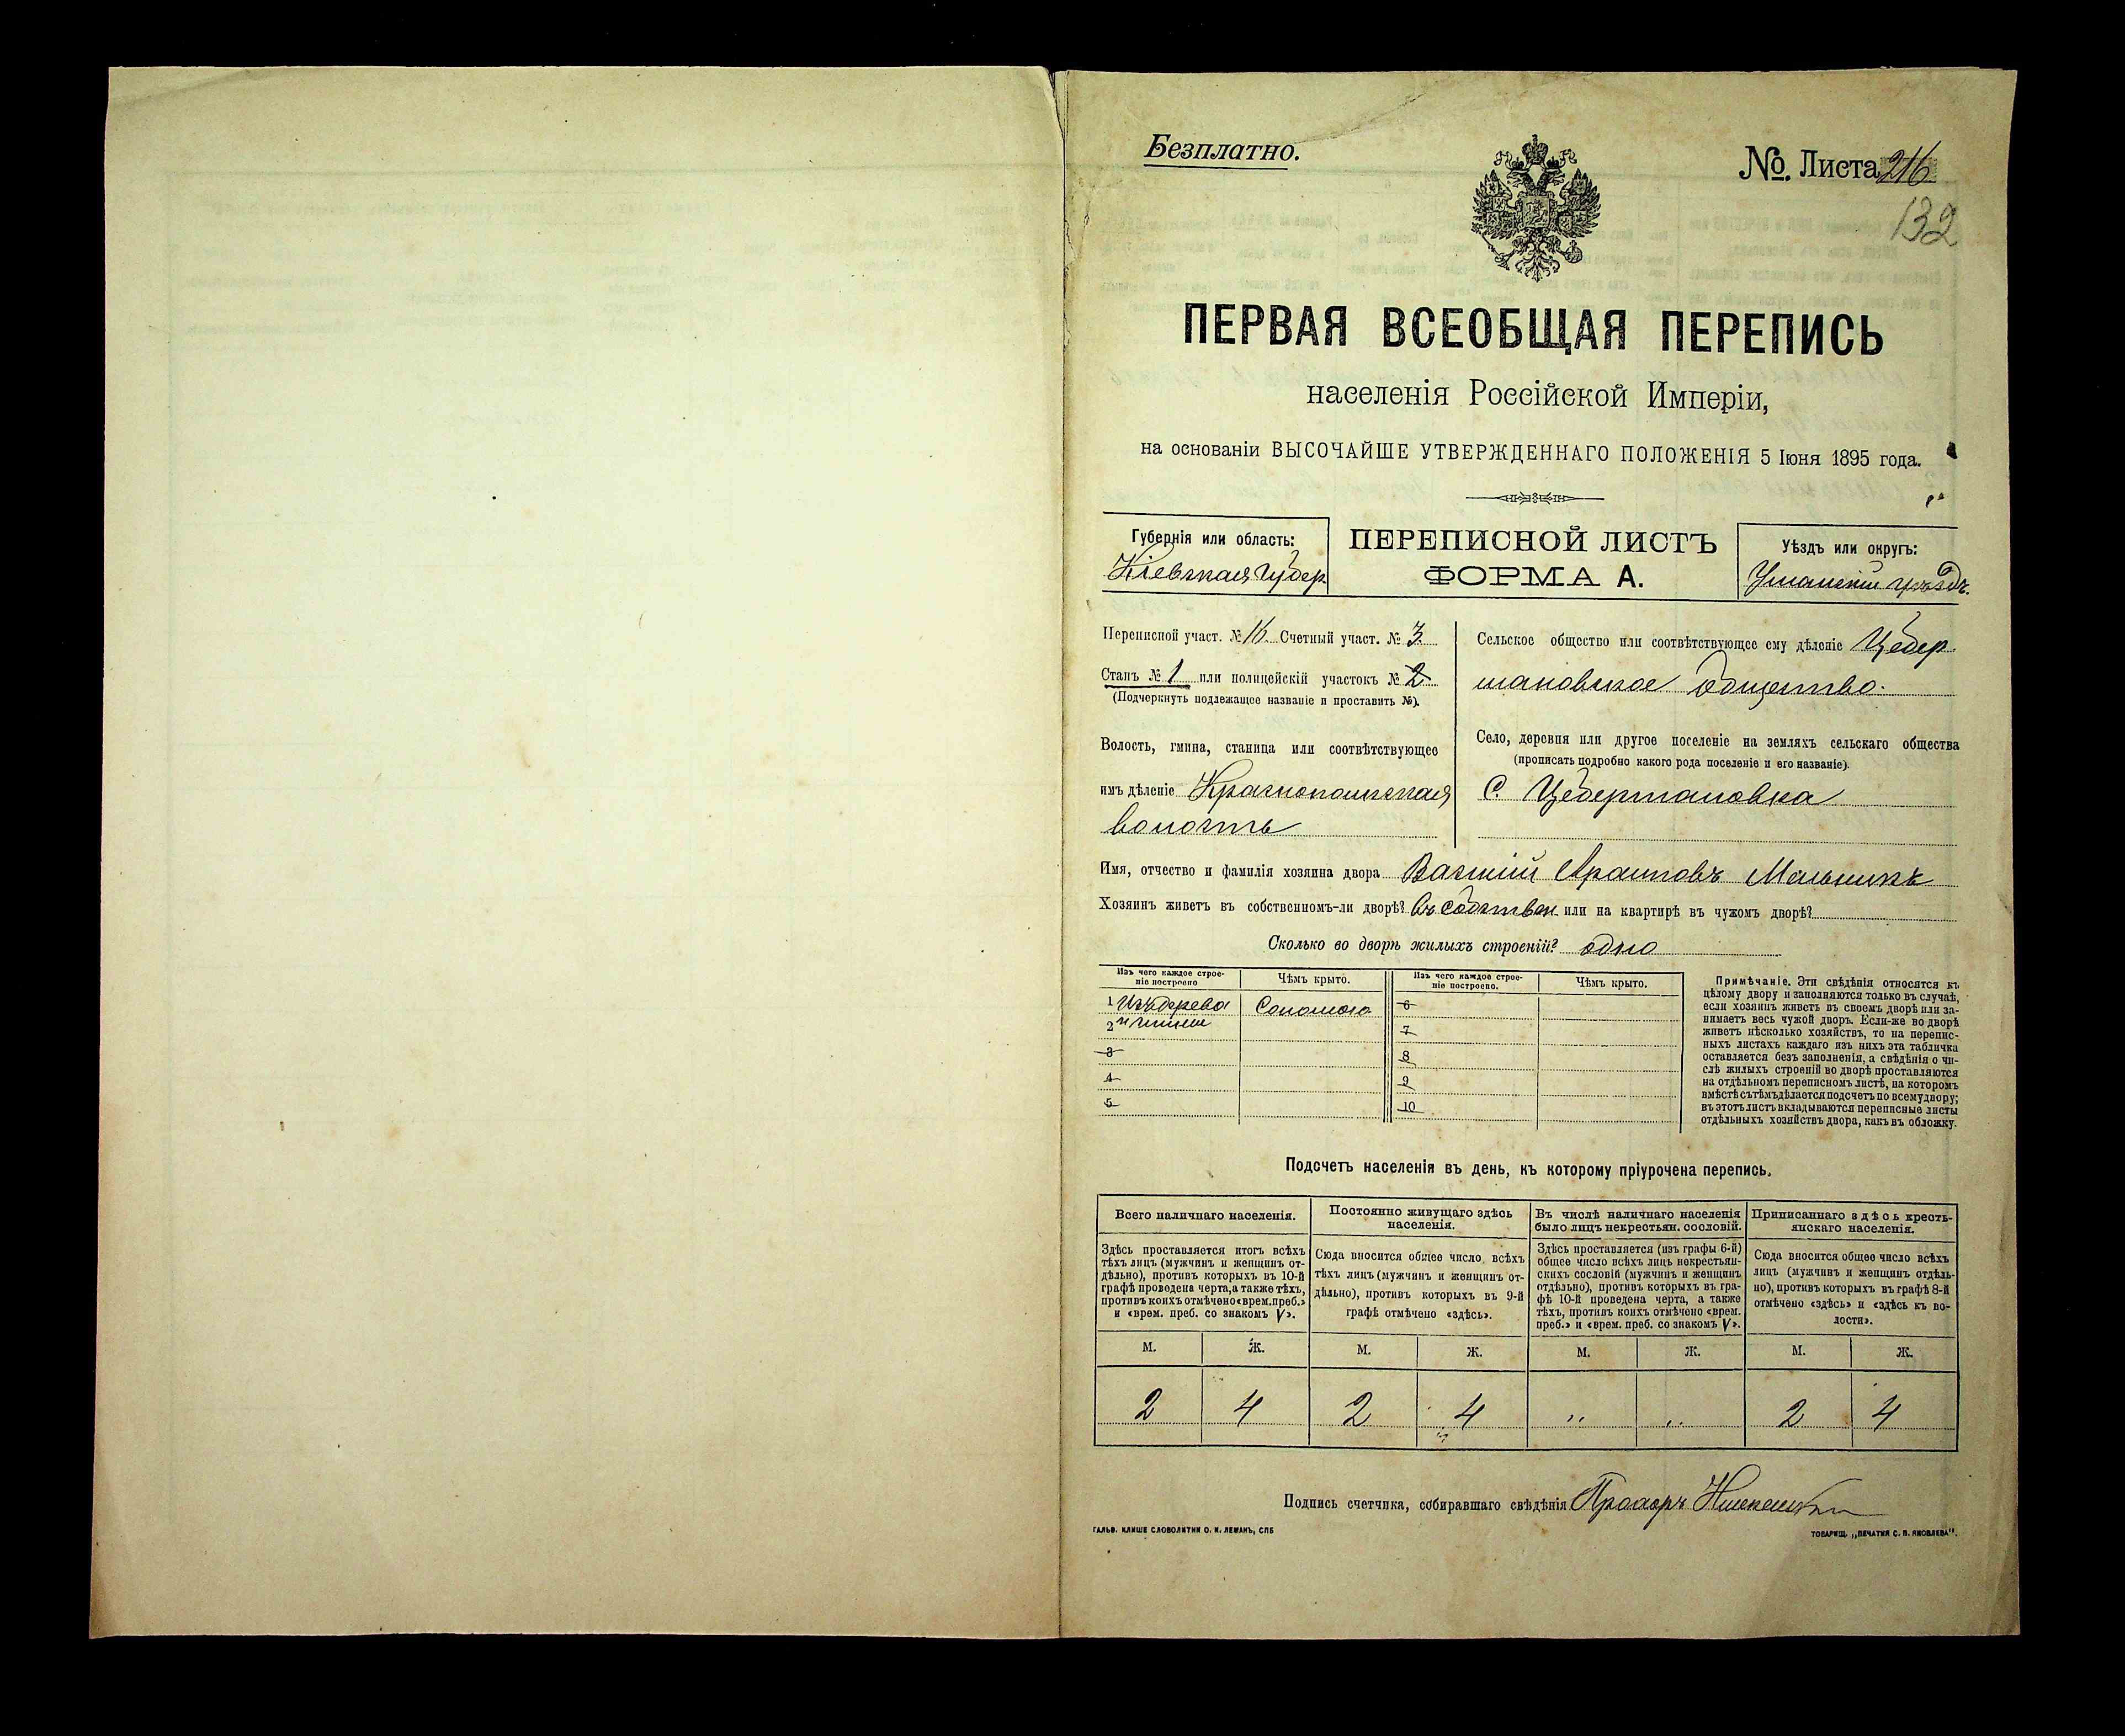 Безплатно.
№. Листа 216
132
ПЕРВАЯ ВСЕОБЩАЯ ПЕРЕПИСЬ
населенія Россійской Имперіи,
на основаніи ВЫСОЧАЙШЕ УТВЕРЖДЕННАГО ПОЛОЖЕНІЯ 5 Іюня 1895 года.
Губернія или область:
Кіевская Губер
ПЕРЕПИСНОЙ ЛИСТЪ
ФОРМА А.
Уѣздъ или округъ:
Уманскій уѣздъ.
Переписной участ. № 16 Счетный участ. № 3
Станъ № 1 или полицейскій участокъ № 2
(Подчеркнуть подлежащее названіе и проставить №).
Волость, гмина, станица или соотвѣтствующее
имъ дѣленіе Краснопольская
волость
Сельское общество или соотвѣтствующее ему дѣленіе Цебер
мановское общество.
Село, деревня или другое поселеніе на земляхъ сельскаго общества
(прописать подробно какого рода поселеніе и его названіе).
С. Цебермановка
Имя, отчество и фамилія хозяина двора Василій Мельникъ
Хозяинъ живетъ въ собственномъ-ли дворѣ? въ собствен. или на квартирѣ въ чужомъ дворѣ?
Сколько во дворѣ жилыхъ строеній? одно
Изъ чего каждое строе-
ніе построено
Чѣмъ крыто.
1 Изъ дерева Соломою
2 и глины
3
4
5
Изъ чего каждое строе-
ніе построено.
Чѣмъ крыто.
6
7
8
9
10
Примѣчаніе. Эти свѣдѣнія относятся къ
цѣлому двору и заполняются только въ случаѣ,
если хозяинъ живетъ въ своемъ дворѣ или за-
нимаетъ весь чужой дворъ. Если-же во дворѣ
живетъ нѣсколько хозяйствъ, то на перепис-
ныхъ листахъ каждаго изъ нихъ эта табличка
оставляется безъ заполненія, а свѣдѣнія о чи-
слѣ жилыхъ строеній во дворѣ проставляются
на отдѣльномъ переписномъ листѣ, на которомъ
вмѣстѣ съ тѣмъ дѣлается подсчетъ по всему двору;
въ этотъ листъ вкладываются переписные листы
отдѣльныхъ хозяйствъ двора, какъ въ обложку.
Подсчетъ населенія въ день, къ которому пріурочена перепись.
Всего наличнаго населенія.
Здѣсь проставляется итогъ всѣхъ
тѣхъ лицъ (мужчинъ и женщинъ от-
дѣльно), противъ которыхъ въ 10-й
графѣ проведена черта, а также тѣхъ,
противъ коихъ отмѣчено «врем. преб.»
и «врем. преб. со знакомъ V».
Постоянно живущаго здѣсь
населенія.
Сюда вносится общее число всѣхъ
тѣхъ лицъ (мужчинъ и женщинъ от-
дѣльно), противъ которыхъ въ 9-й
графѣ отмѣчено «здѣсь».
Въ числѣ наличнаго населенія
было лицъ некрестьян. сословій.
Здѣсь проставляется (изъ графы 6-й)
общее число всѣхъ лицъ некрестьян-
скихъ сословій (мужчинъ и женщинъ
отдѣльно), противъ которыхъ въ гра-
фѣ 10-й проведена черта, а также
тѣхъ, противъ коихъ отмѣчено «врем.
преб.» и «врем. преб. со знакомъ V».
Приписаннаго здѣсь кресть-
янскаго населенія.
Сюда вносится общее число всѣхъ
лицъ (мужчинъ и женщинъ отдѣль-
но), противъ которыхъ въ графѣ 8-й
отмѣчено «здѣсь» и «здѣсь къ во-
лости».
М. Ж. М. Ж. М. Ж. М. Ж.
2 4 2 4 „ „ 2 4
Подпись счетчика, собиравшаго свѣдѣнія Прохоръ
ГАЛЬВ. КЛИШЕ СЛОВОЛИТНИ О. И. ЛЕМАНЪ, СПБ
ТОВАРИЩ. „ПЕЧАТНЯ С. П. ЯКОВЛЕВА“.